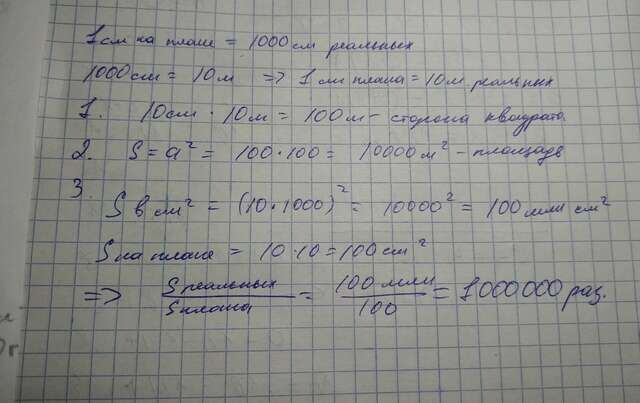 1 см на плане = 1000 см реальных
1000 см = 10 м => 1 см плана = 10 м реальных
1. 10 см · 10 м = 100 м - сторона квадрата.
2. S = a² = 100 · 100 = 10000 м² - площадь
3.
S в см² = (10 · 1000)² = 10000² = 100 млн см²
S на плане = 10 · 10 = 100 см²
=> S реальных / S плана = 100 млн / 100 = 1000000 раз.